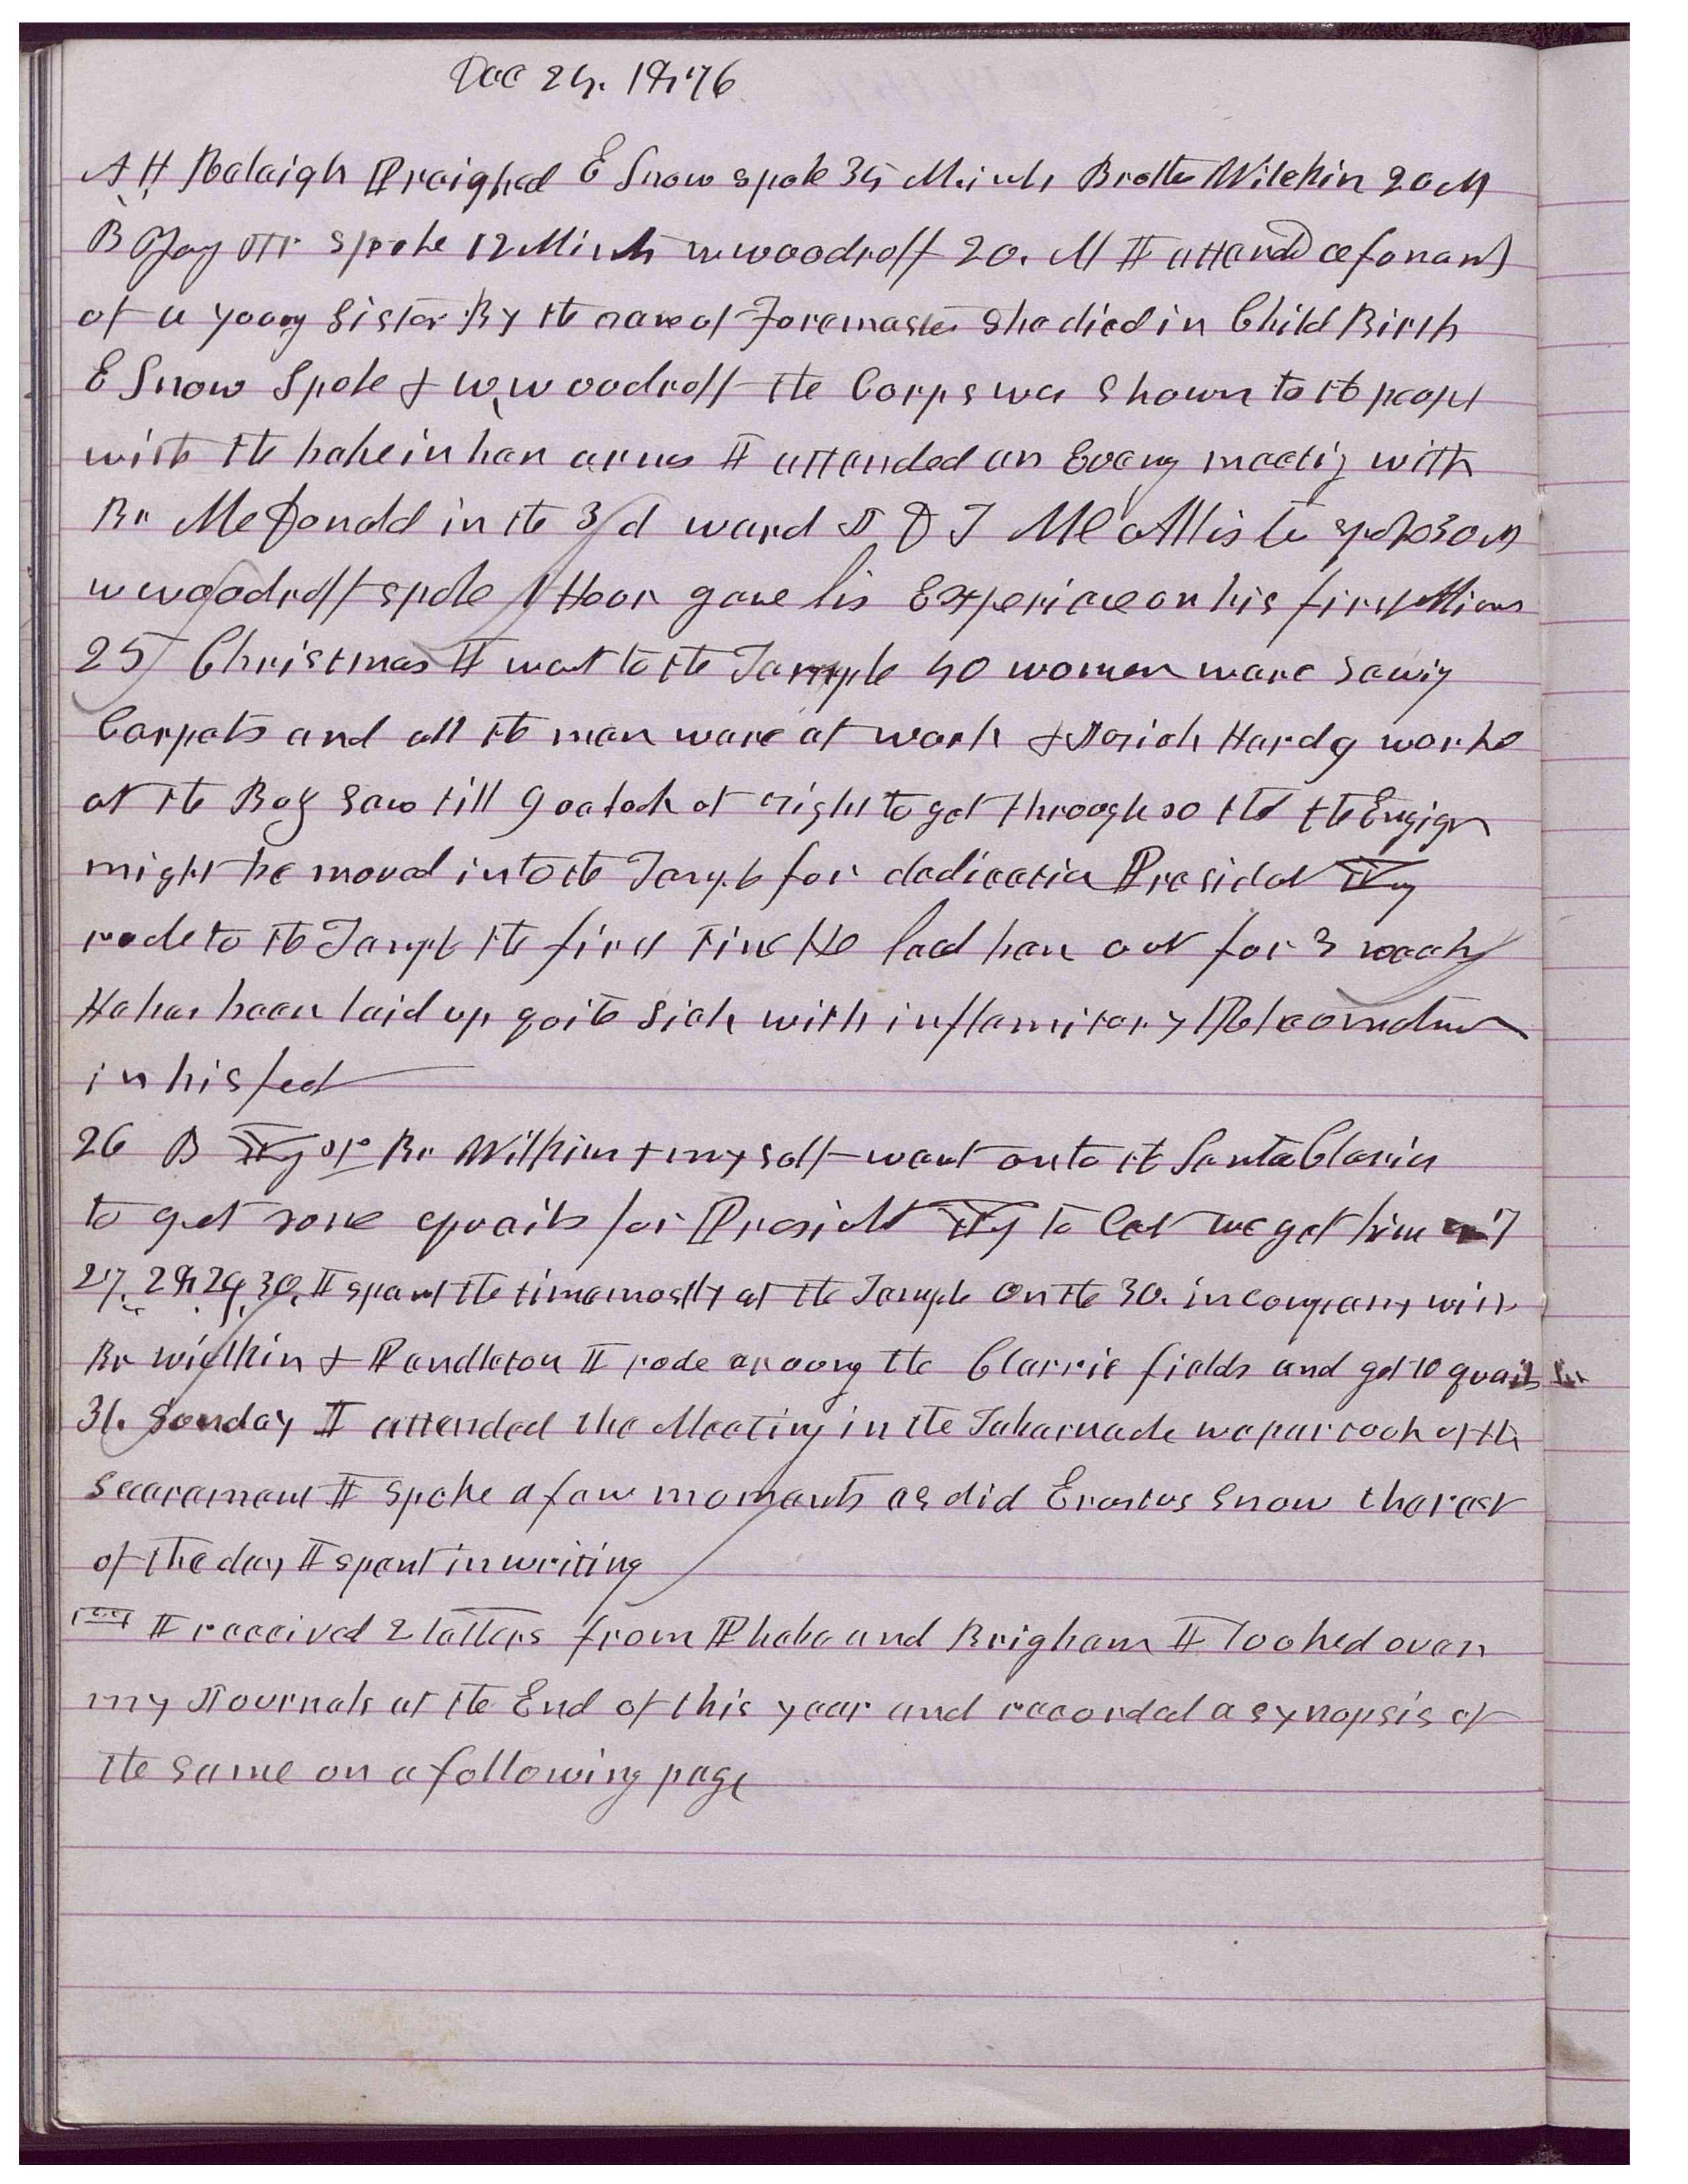 Dec 24. 1876
A H Raleigh Preighed E Snow spoke 35 Minuts Brother Wilekin 20 M
B Yog Jr spoke 12 Minuts W woodruff 20. M I attend a funeral
of a young Sister By the name of Foremaster She died in Child Birth
E Snow Spoke & W, Woodruff the Corps was shown to the people
with the babe in her arms I attended an Eveng meetig with
Br McDonald in the 3/d ward J D T McAllister spoke 30 M
W woodruff spoke 1 Hour gave his Experiace on his first Mions
25 Christmas I went to the Temple 40 women ware sewig
Carpets and all the men ware at work & Josiah Hardy worke
at the Buz saw till 9 oclock at night to get through so that the Engign
might be moved into the Temple for dedication President Yg
rode to the Temple the first time He had ben out for 3 weeks
He has been laid up quite sick with inflamitory Rheumatism
in his feet
26 B Yg Jr Br Wilkin & myself went onto the Santa Claria
to get some quails for Presidet Yg to eat we got him 7
27, 28, 29, 30, I spent the time mostly at the Temple On the 30. in company with
Br wilkin & Pendleton I rode aroung the Clarrie fields and got 10 quails
31. Sunday I attended the Meeting in the Tabernacle we partook of the
Sacrament I spoke a few moments as did Erastus Snow the rest
of the day I spent in writing
I received 2 letters from Phebe and Brigham I looked over
my Journals at the End of this year and recorded a synopsis of
the same on a following page